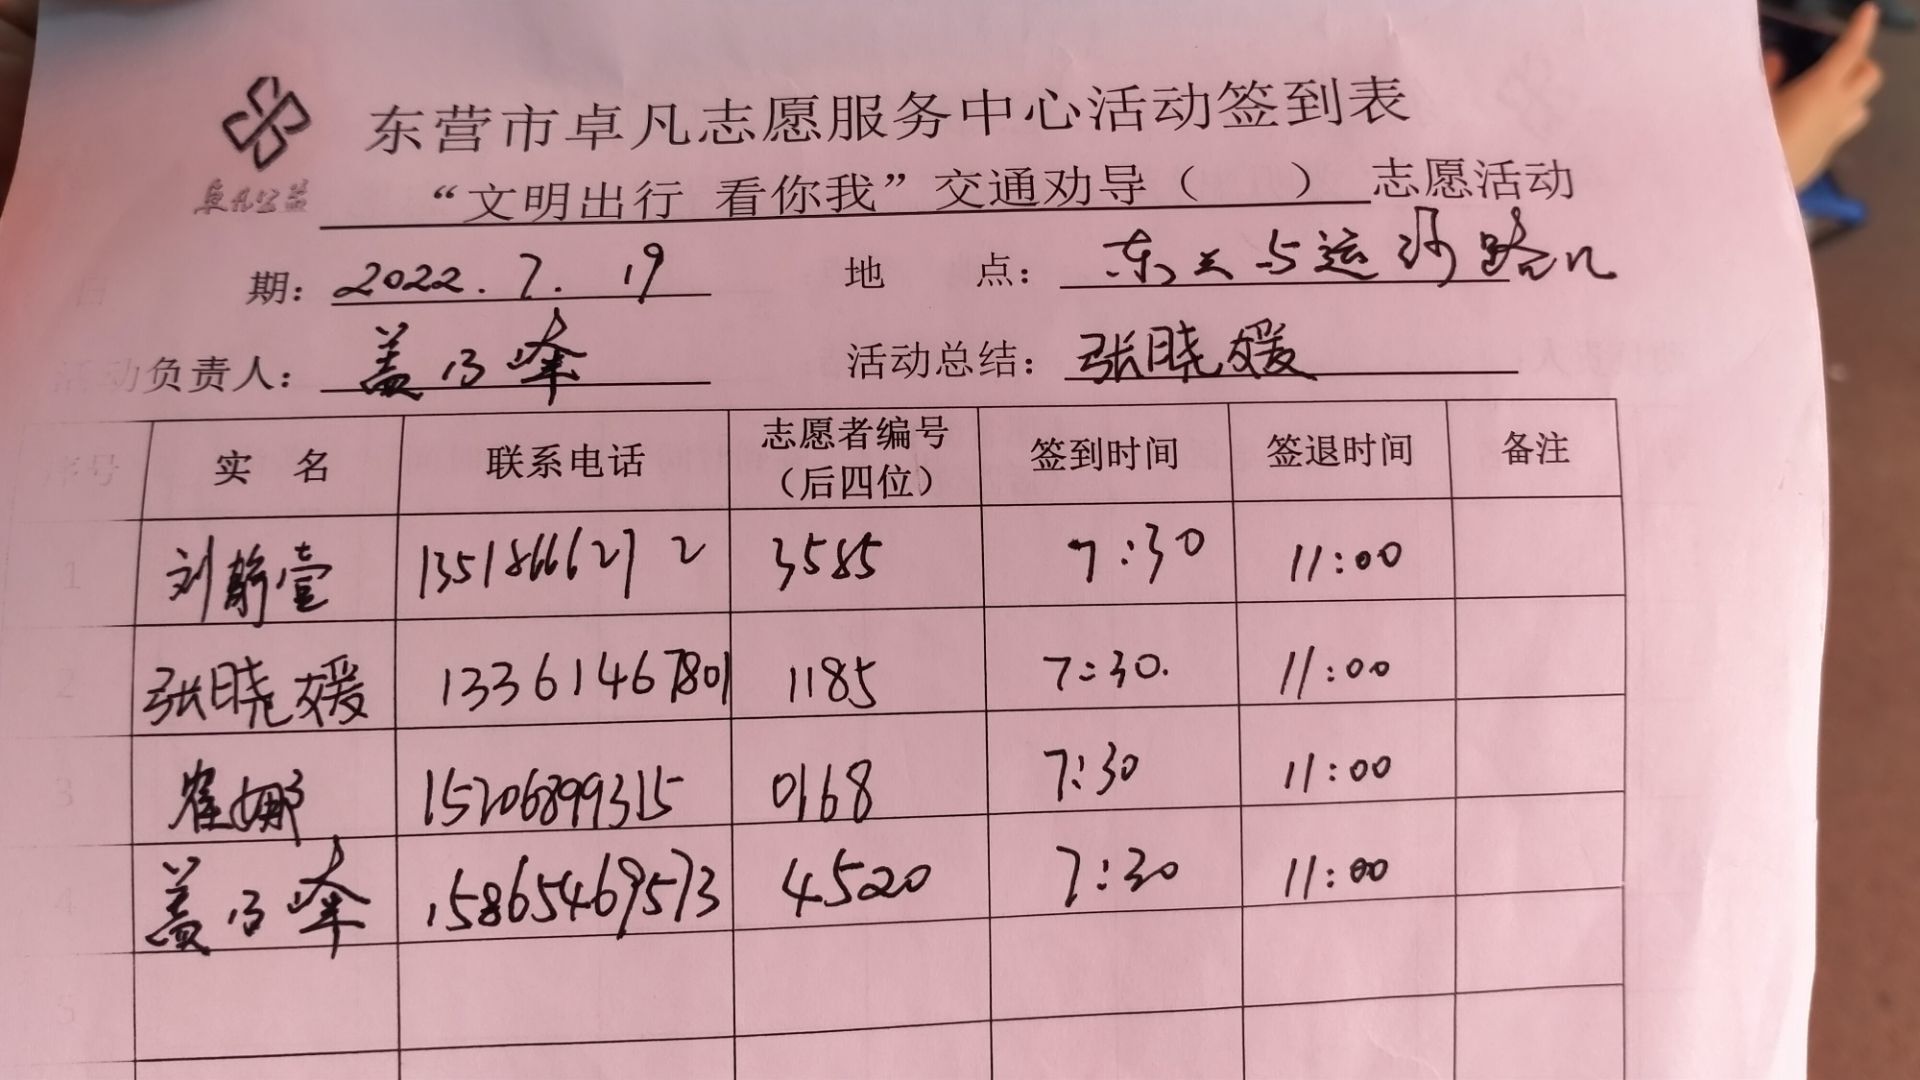 东营市卓凡志愿服务中心活动签到表
卓凡公益
“文明出行 看你我”交通劝导（ ）志愿活动
日 期：2022.7.19 地 点：东三与运河路口
活动负责人：盖乃峰 活动总结：张晓媛
序号 实 名 联系电话 志愿者编号（后四位） 签到时间 签退时间 备注
1 刘 13518666272 3585 7:30 11:00
2 张晓媛 13361467801 1185 7:30. 11:00
3 崔娜 15206899315 0168 7:30 11:00
4 盖乃峰 15865469573 4520 7:30 11:00
5